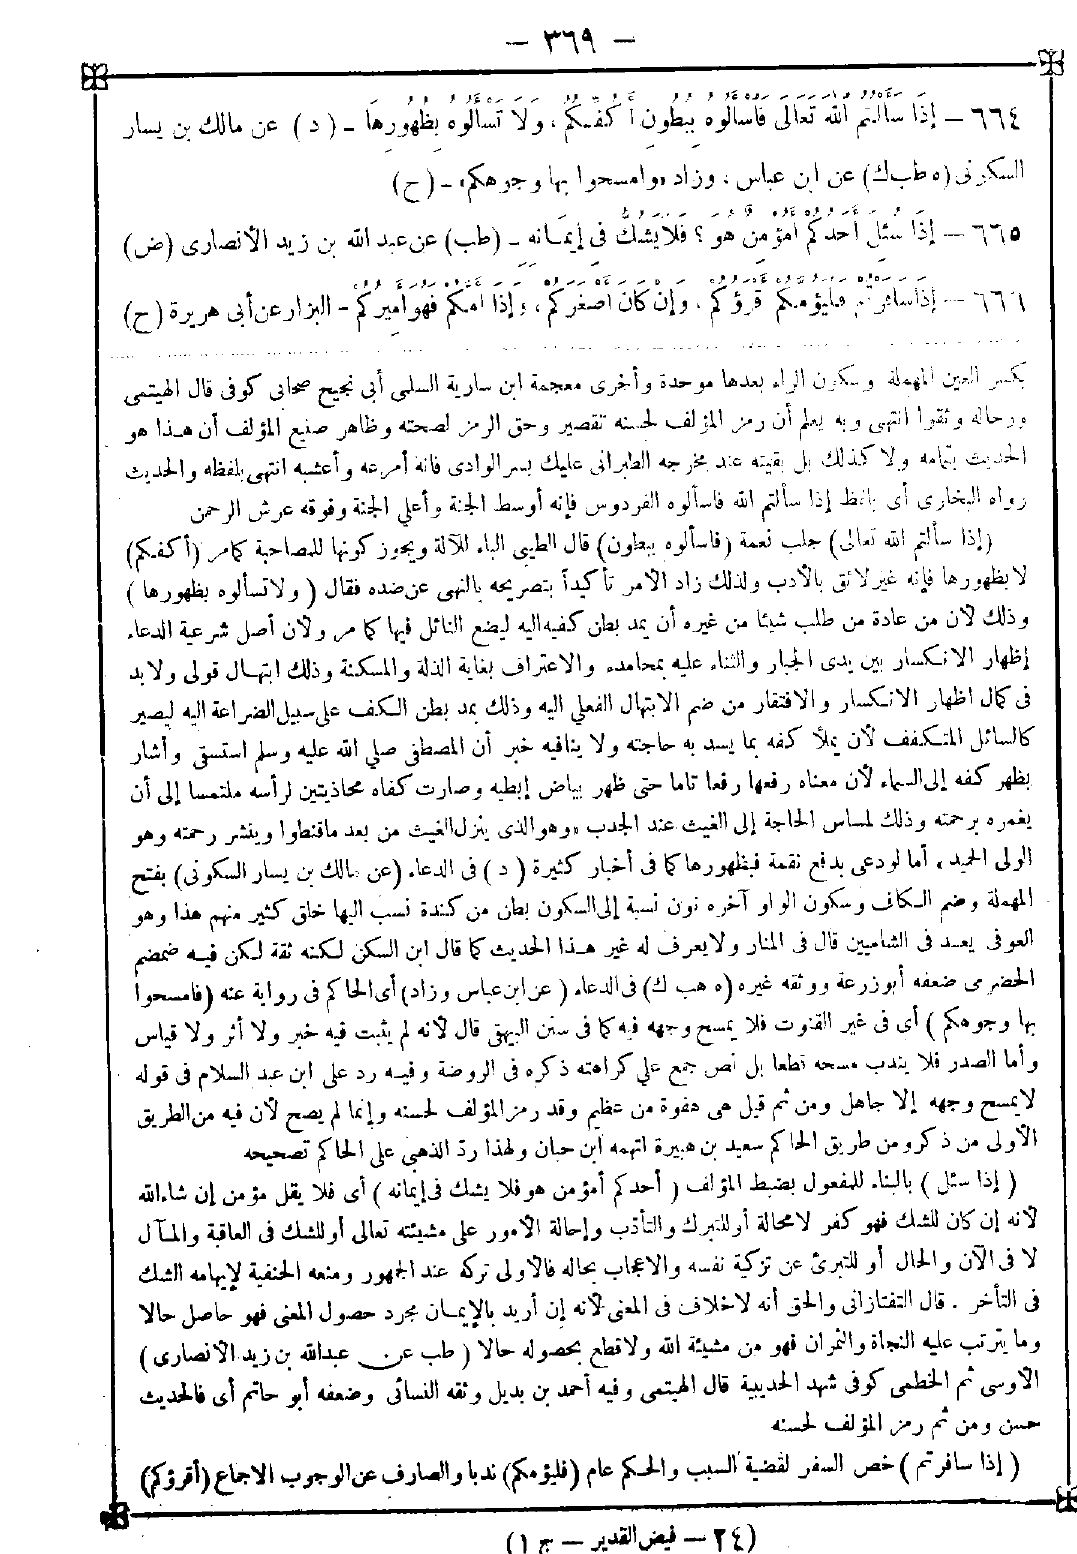 — ٣٦٩ —
٦٦٤ — إِذَا سَأَلْتُمُ اللهَ تَعَالَى فَاسْأَلُوهُ بِبُطُونِ أَكُفِّكُمْ، وَلَا تَسْأَلُوهُ بِظُهُورِهَا - (د) عن مالك بن يسار
السكونى (ه طب ك) عن ابن عباس، وزاد «وامسحوا بها وجوهكم» - (ح)
٦٦٥ — إِذَا سُئِلَ أَحَدُكُمْ أَمُؤْمِنٌ هُوَ؟ فَلَا يَشُكَّ فِي إِيمَانِهِ - (طب) عن عبد الله بن زيد الأنصارى (ض)
٦٦٦ — إِذَا سَافَرْتُمْ فَلْيَؤُمَّكُمْ أَقْرَؤُكُمْ، وَإِنْ كَانَ أَصْغَرَكُمْ، وَإِذَا أَمَّكُمْ فَهُوَ أَمِيرُكُمْ - البزار عن أبى هريرة (ح)
بكسر العين المهملة وسكون الراء بعدها موحدة وأخرى معجمة ابن سارية السلمى أبى نجيح صحابى كوفى قال الهيتمى
ورجاله وثقوا انتهى وبه يعلم أن رمز المؤلف لحسنه تقصير وحق الرمز لصحته وظاهر صنيع المؤلف أن هذا هو
الحديث بتمامه ولا كذلك بل بقيته عند مخرجه الطبرانى عليك بسر الوادى فانه أمرعه وأعشبه انتهى بلفظه والحديث
رواه البخارى أى بلفظ إذا سألتم الله فاسألوه الفردوس فإنه أوسط الجنة وأعلى الجنة وفوقه عرش الرحمن
(إذا سألتم الله تعالى) جلب نعمة (فاسألوه ببطون) قال الطيبى الباء للآلة ويجوز كونها للمصاحبة كما مر (أكفكم)
لا بظهورها فإنه غير لائق بالأدب ولذلك زاد الأمر تأكيدا بتصريحه بالنهى عن ضده فقال (ولا تسألوه بظهورها)
وذلك لأن من عادة من طلب شيئا من غيره أن يمد بطن كفيه اليه ليضع النائل فيها كما مر ولأن أصل شرعية الدعاء
إظهار الانكسار بين يدى الجبار والثناء عليه بمحامده والاعتراف بغاية الذلة والمسكنة وذلك ابتهال قولى ولا بد
فى كمال اظهار الانكسار والافتقار من ضم الابتهال الفعلي اليه وذلك بمد بطن الكف على سبيل الضراعة اليه ليصير
كالسائل المتكفف لأن يملأ كفه بما يسد به حاجته ولا ينافيه خبر أن المصطفى صلي الله عليه وسلم استسقى وأشار
بظهر كفه إلى السماء لأن معناه رفعها رفعا تاما حتى ظهر بياض إبطيه وصارت كفاه محاذيتين لرأسه ملتمسا إلى أن
يغمره برحمته وذلك لمساس الحاجة إلى الغيث عند الجدب «وهو الذى ينزل الغيث من بعد ما قنطوا وينشر رحمته وهو
الولى الحميد، أما لو دعى بدفع نقمة فبظهورها كما فى أخبار كثيرة (د) فى الدعاء (عن مالك بن يسار السكونى) بفتح
المهملة وضم الكاف وسكون الواو آخره نون نسبة إلى السكون بطن من كندة نسب اليها خلق كثير منهم هذا وهو
العوفى يعد فى الشاميين قال فى المنار ولا يعرف له غير هذا الحديث كما قال ابن السكن لكنه ثقة لكن فيه ضمضم
الحضرمى ضعفه أبو زرعة ووثقه غيره (ه هب ك) فى الدعاء (عن ابن عباس وزاد) أى الحاكم فى رواية عنه (فامسحوا
بها وجوهكم) أى فى غير القنوت فلا يمسح وجهه فيه كما فى سنن البيهقى قال لأنه لم يثبت فيه خبر ولا أثر ولا قياس
وأما الصدر فلا يندب مسحه قطعا بل نص جمع علي كراهته ذكره فى الروضة وفيه رد على ابن عبد السلام فى قوله
لا يمسح وجهه إلا جاهل ومن ثم قيل هى هفوة من عظيم وقد رمز المؤلف لحسنه وإنما لم يصح لأن فيه من الطريق
الأولى من ذكر ومن طريق الحاكم سعيد بن هبيرة اتهمه ابن حبان ولهذا ردّ الذهبى على الحاكم تصحيحه
(إذا سئل) بالبناء للمفعول بضبط المؤلف (أحدكم أمؤمن هو فلا يشك فى إيمانه) أى فلا يقل مؤمن إن شاء الله
لأنه إن كان للشك فهو كفر لا محالة أو للتبرك والتأدب وإحالة الأمور على مشيئته تعالى أو للشك فى العاقبة والمآل
لا فى الآن والحال أو للتبرئ عن تزكية نفسه والاعجاب بحاله فالأولى تركه عند الجمهور ومنعه الحنفية لإيهامه الشك
فى التأخر . قال التفتازانى والحق أنه لا خلاف فى المعنى لأنه إن أريد بالإيمان مجرد حصول المعنى فهو حاصل حالا
وما يترتب عليه النجاة والثمرات فهو من مشيئة الله ولا قطع بحصوله حالا (طب عن عبد الله بن زيد الأنصارى)
الأوسى ثم الخطمى كوفى شهد الحديبية قال الهيتمى وفيه أحمد بن بديل وثقه النسائى وضعفه أبو حاتم أى فالحديث
حسن ومن ثم رمز المؤلف لحسنه
(إذا سافرتم) خص السفر لقضية السبب والحكم عام (فليؤمكم) ندبا والصارف عن الوجوب الاجماع (أقرؤكم)
(٢٤ — فيض القدير — ج ١)